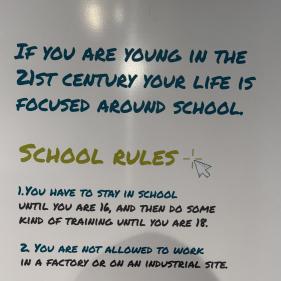 IF YOU ARE YOUNG IN THE
21ST CENTURY YOUR LIFE IS
FOCUSED AROUND SCHOOL.
SCHOOL RULES
1.YOU HAVE TO STAY IN SCHOOL
UNTIL YOU ARE 16, AND THEN DO SOME
KIND OF TRAINING UNTIL YOU ARE 18.
2. YOU ARE NOT ALLOWED TO WORK
IN A FACTORY OR ON AN INDUSTRIAL SITE.